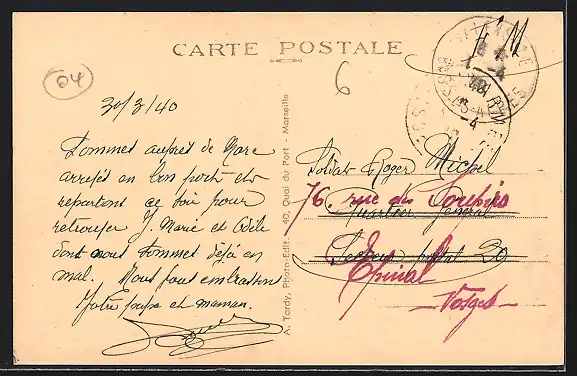 04
CARTE POSTALE
6
F.M
30/3/40
Sommes auprès de Marc
arrivés en bon port et
repartons ce soir pour
retrouver J. Marie et Odile
dont nous sommes déjà en
mal. Nous vous embrassons
Votre papa et maman.
A. Tardy, Photo-Edit. 40, Quai du Port - Marseille
Soldat Roger Michel
76 rue des Soupirs
Quartier Général
Secteur postal 20
Epinal
Vosges